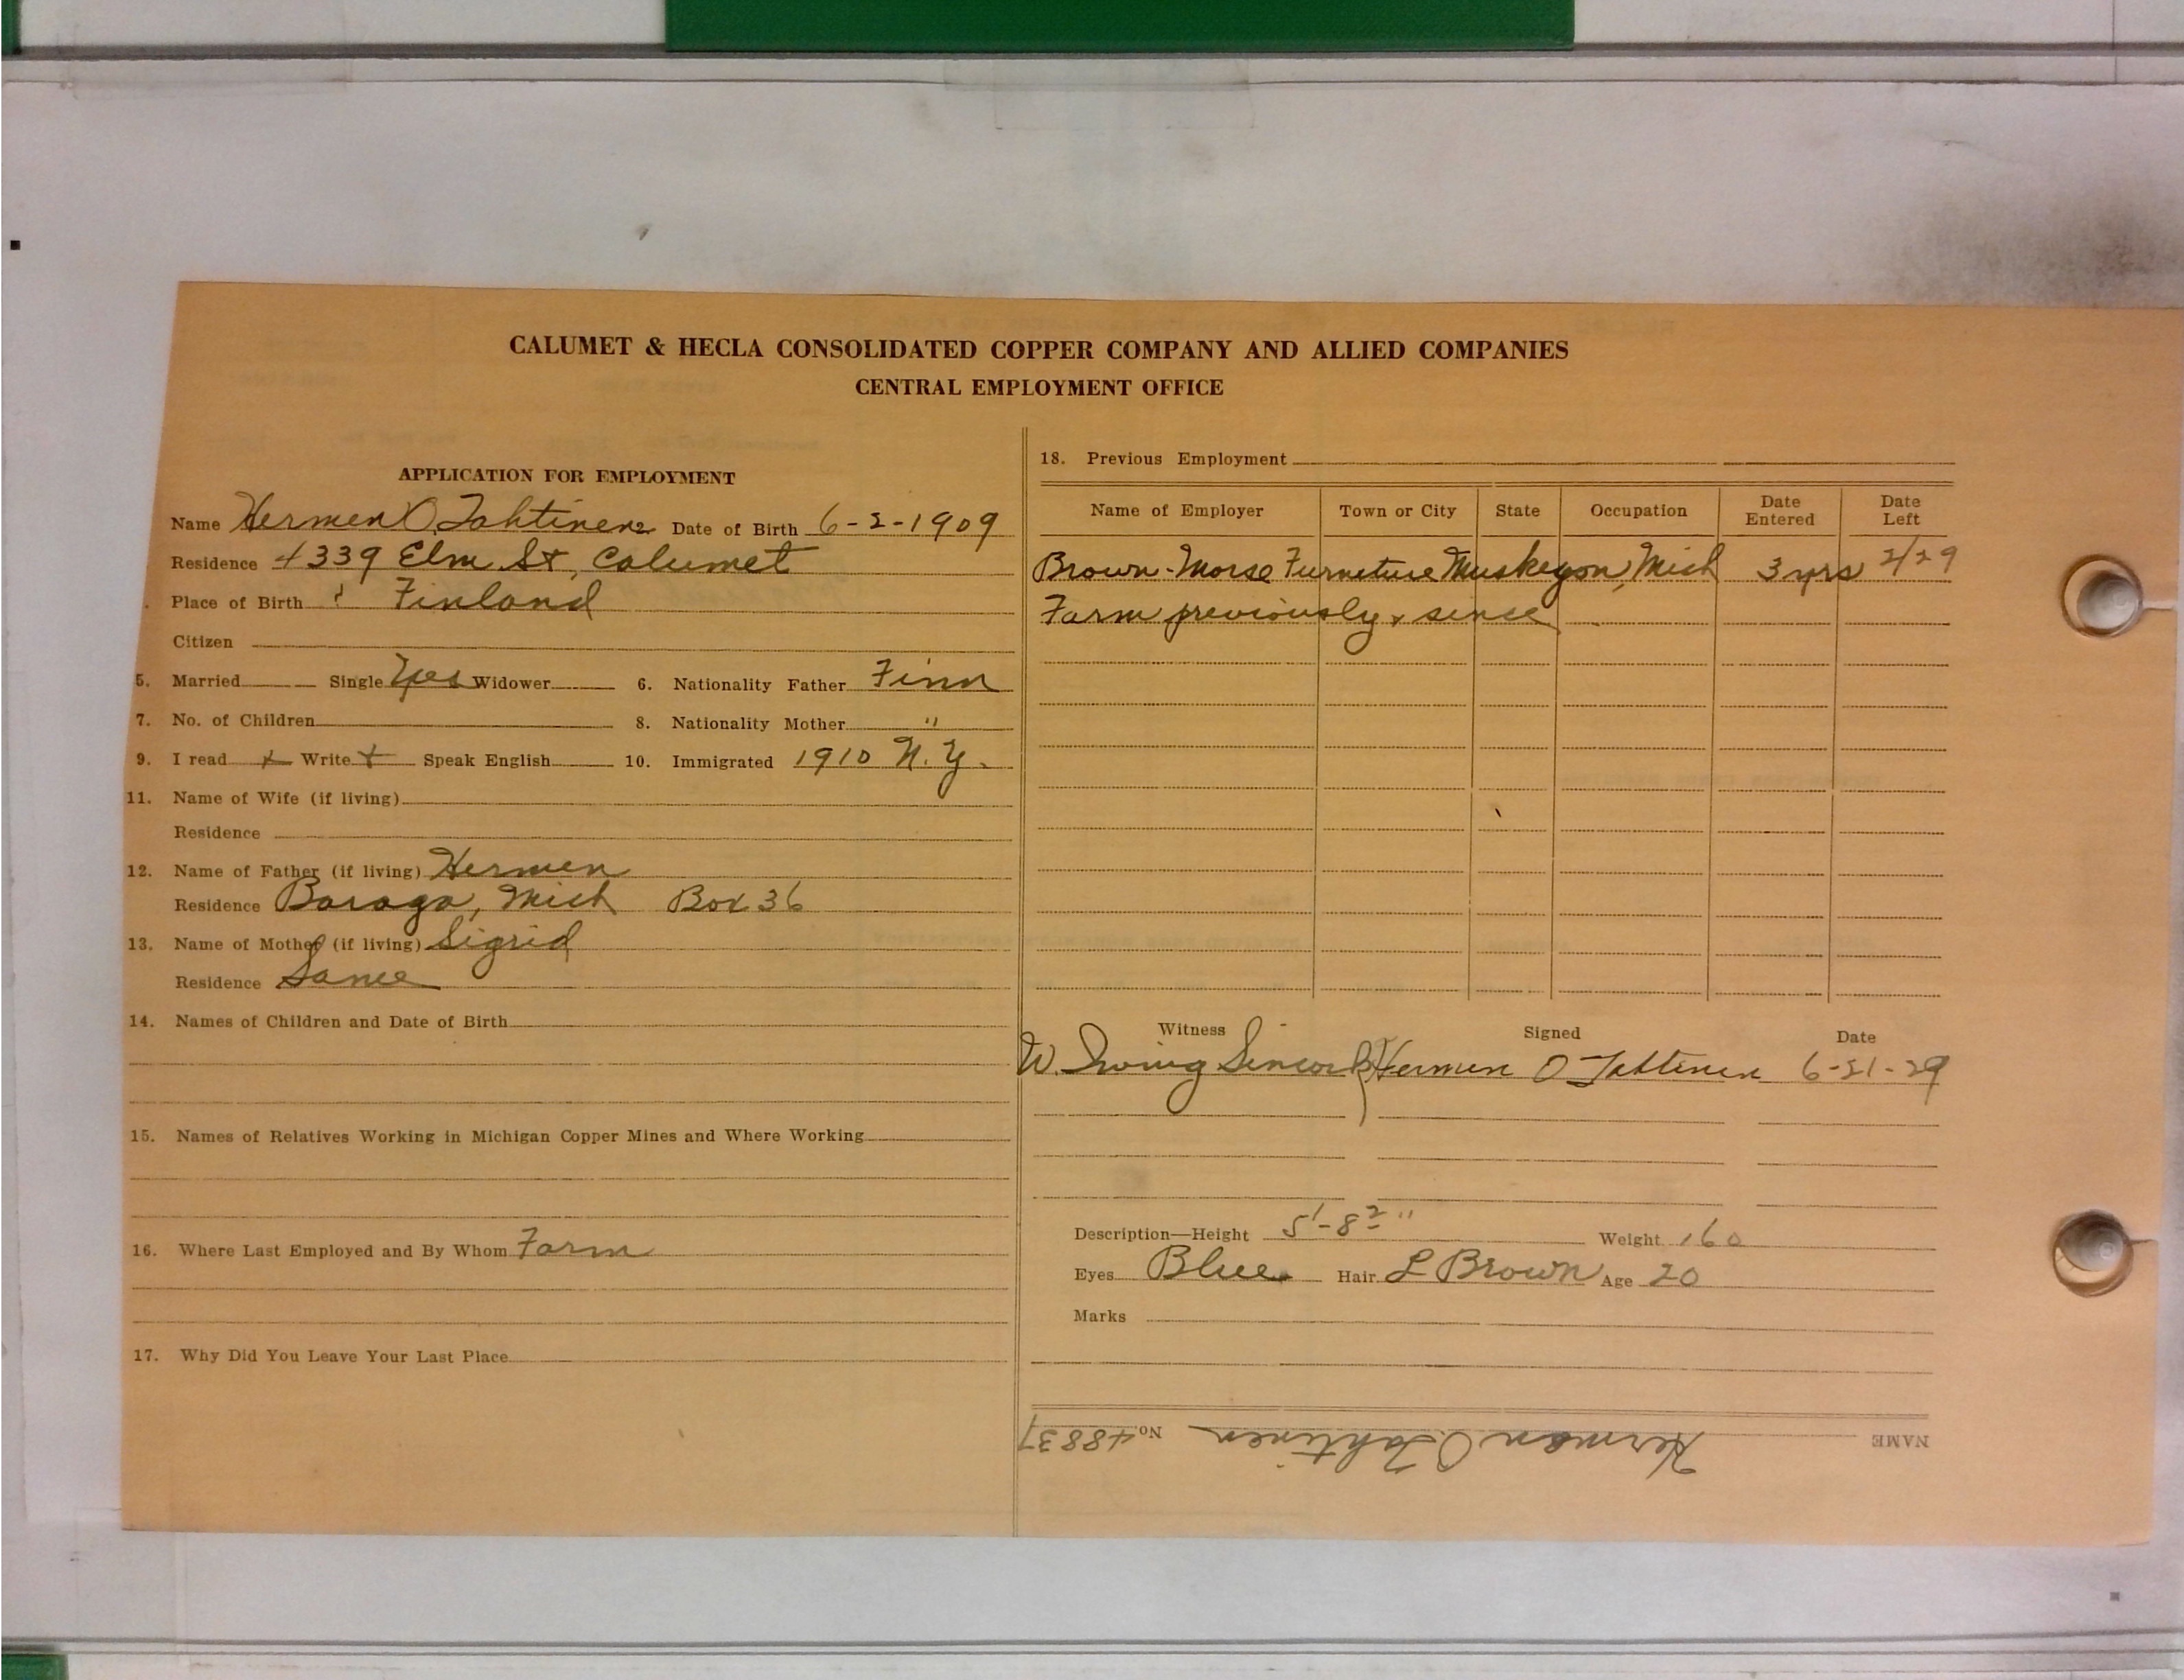 CALUMET & HECLA CONSOLIDATED COPPER COMPANY AND ALLIED COMPANIES
CENTRAL EMPLOYMENT OFFICE
APPLICATION FOR EMPLOYMENT
Name Hermen O. Tahtinen Date of Birth 6-2-1909
Residence 4339 Elm St, Calumet
Place of Birth Finland
Citizen
5. Married Single Yes Widower 6. Nationality Father Finn
7. No. of Children 8. Nationality Mother "
9. I read x Write x Speak English 10. Immigrated 1910 N.Y.
11. Name of Wife (if living)
Residence
12. Name of Father (if living) Hermen
Residence Baraga, Mich Box 36
13. Name of Mother (if living) Sigrid
Residence Same
14. Names of Children and Date of Birth
15. Names of Relatives Working in Michigan Copper Mines and Where Working
16. Where Last Employed and By Whom Farm
17. Why Did You Leave Your Last Place
18. Previous Employment
Name of Employer Town or City State Occupation Date Entered Date Left
Brown-Morse Furneture Muskegon, Mich 3 yrs 2/29
Farm previously & since
Witness Signed Date
W. Irving Hermen O Tahtinen 6-21-29
Description—Height 5'-8½" Weight 160
Eyes Blue Hair L Brown Age 20
Marks
NAME Herman O Tahtinen No. 48837